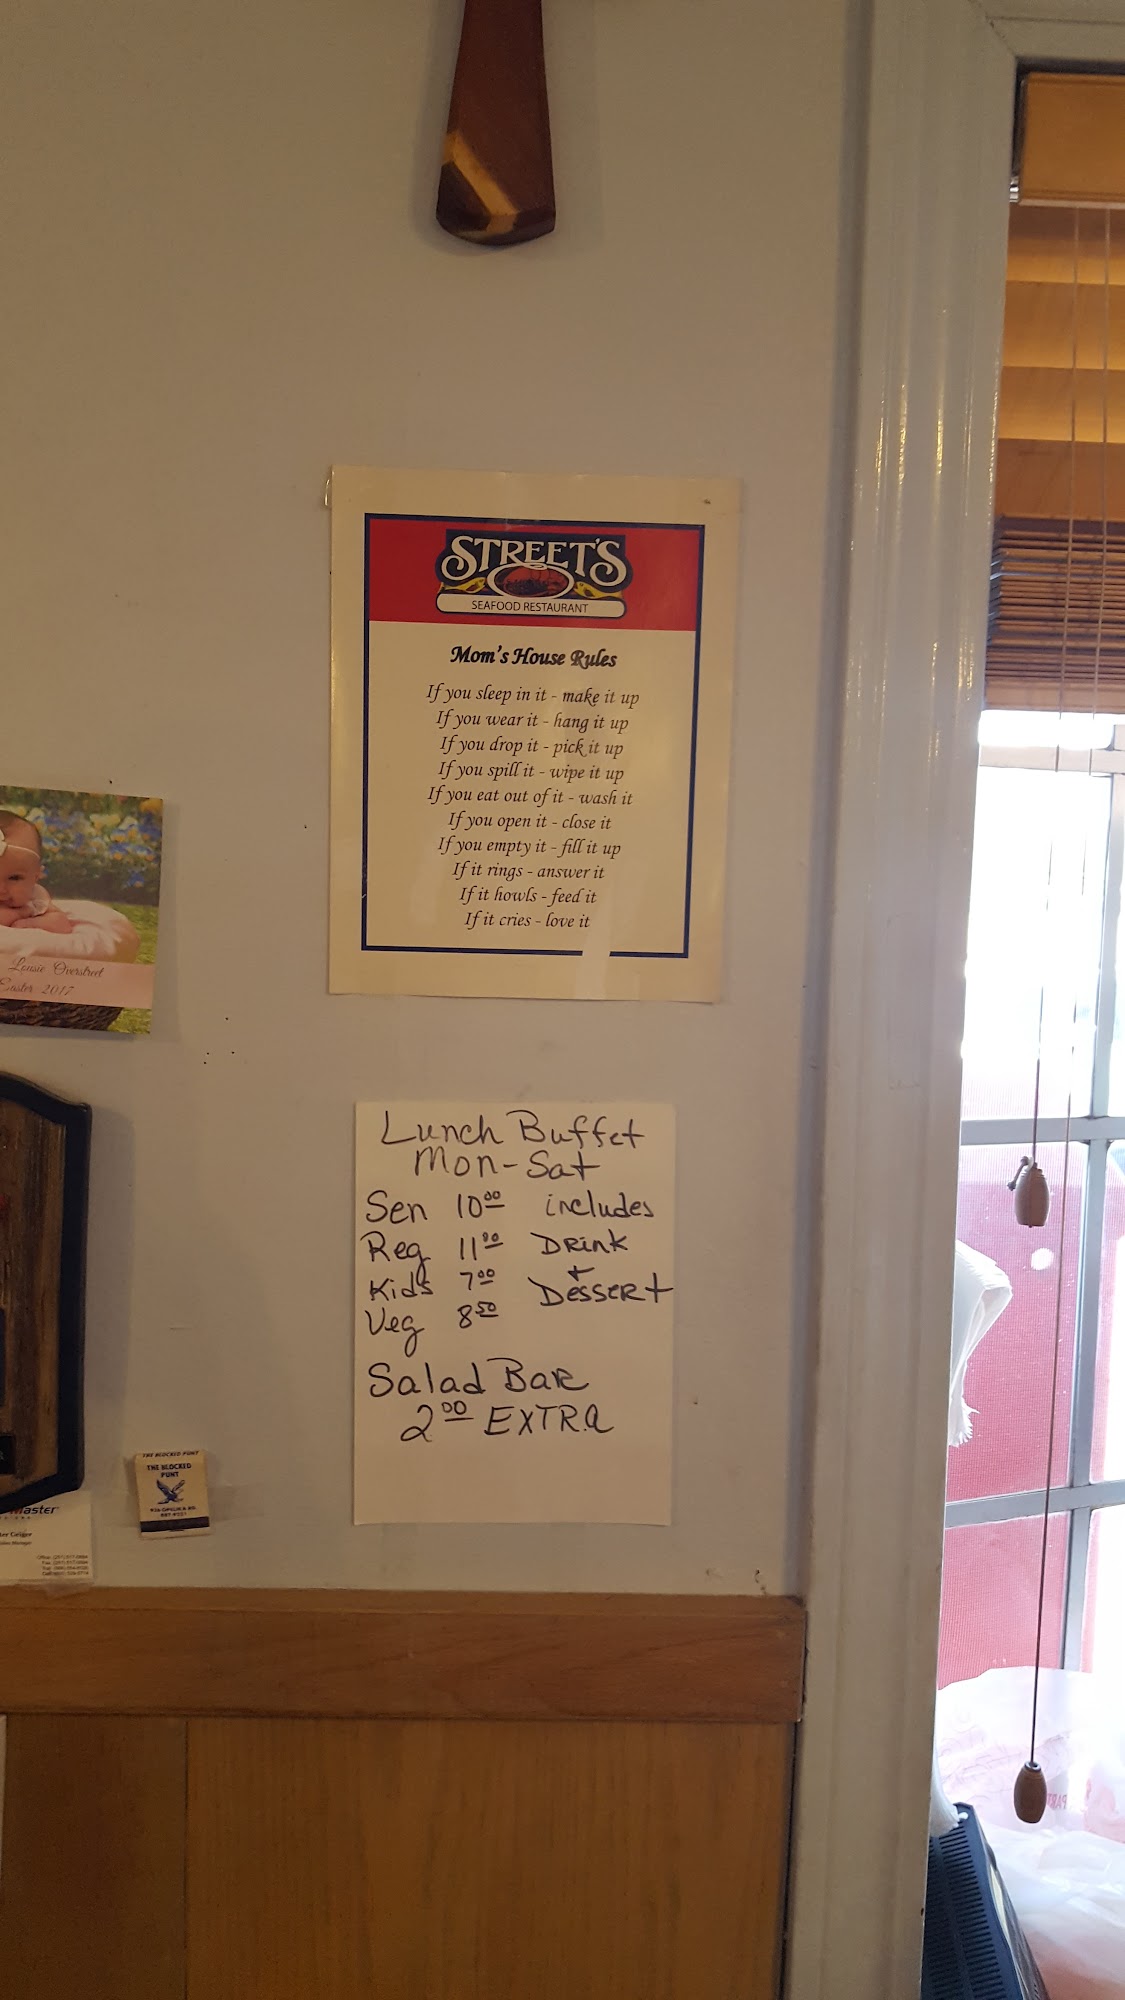 STREET'S
SEAFOOD RESTAURANT
Mom's House Rules
If you sleep in it - make it up
If you wear it - hang it up
If you drop it - pick it up
If you spill it - wipe it up
If you eat out of it - wash it
If you open it - close it
If you empty it - fill it up
If it rings - answer it
If it howls - feed it
If it cries - love it
Lousie Overstreet
Easter 2017
Lunch Buffet
Mon-Sat
Sen 10⁰⁰ includes
Reg 11⁰⁰ DRINK
+
Kids 7⁰⁰ DESSERT
Veg 8⁵⁰
Salad BAR
2⁰⁰ EXTRA
THE BLOCKED PUNT
THE BLOCKED
PUNT